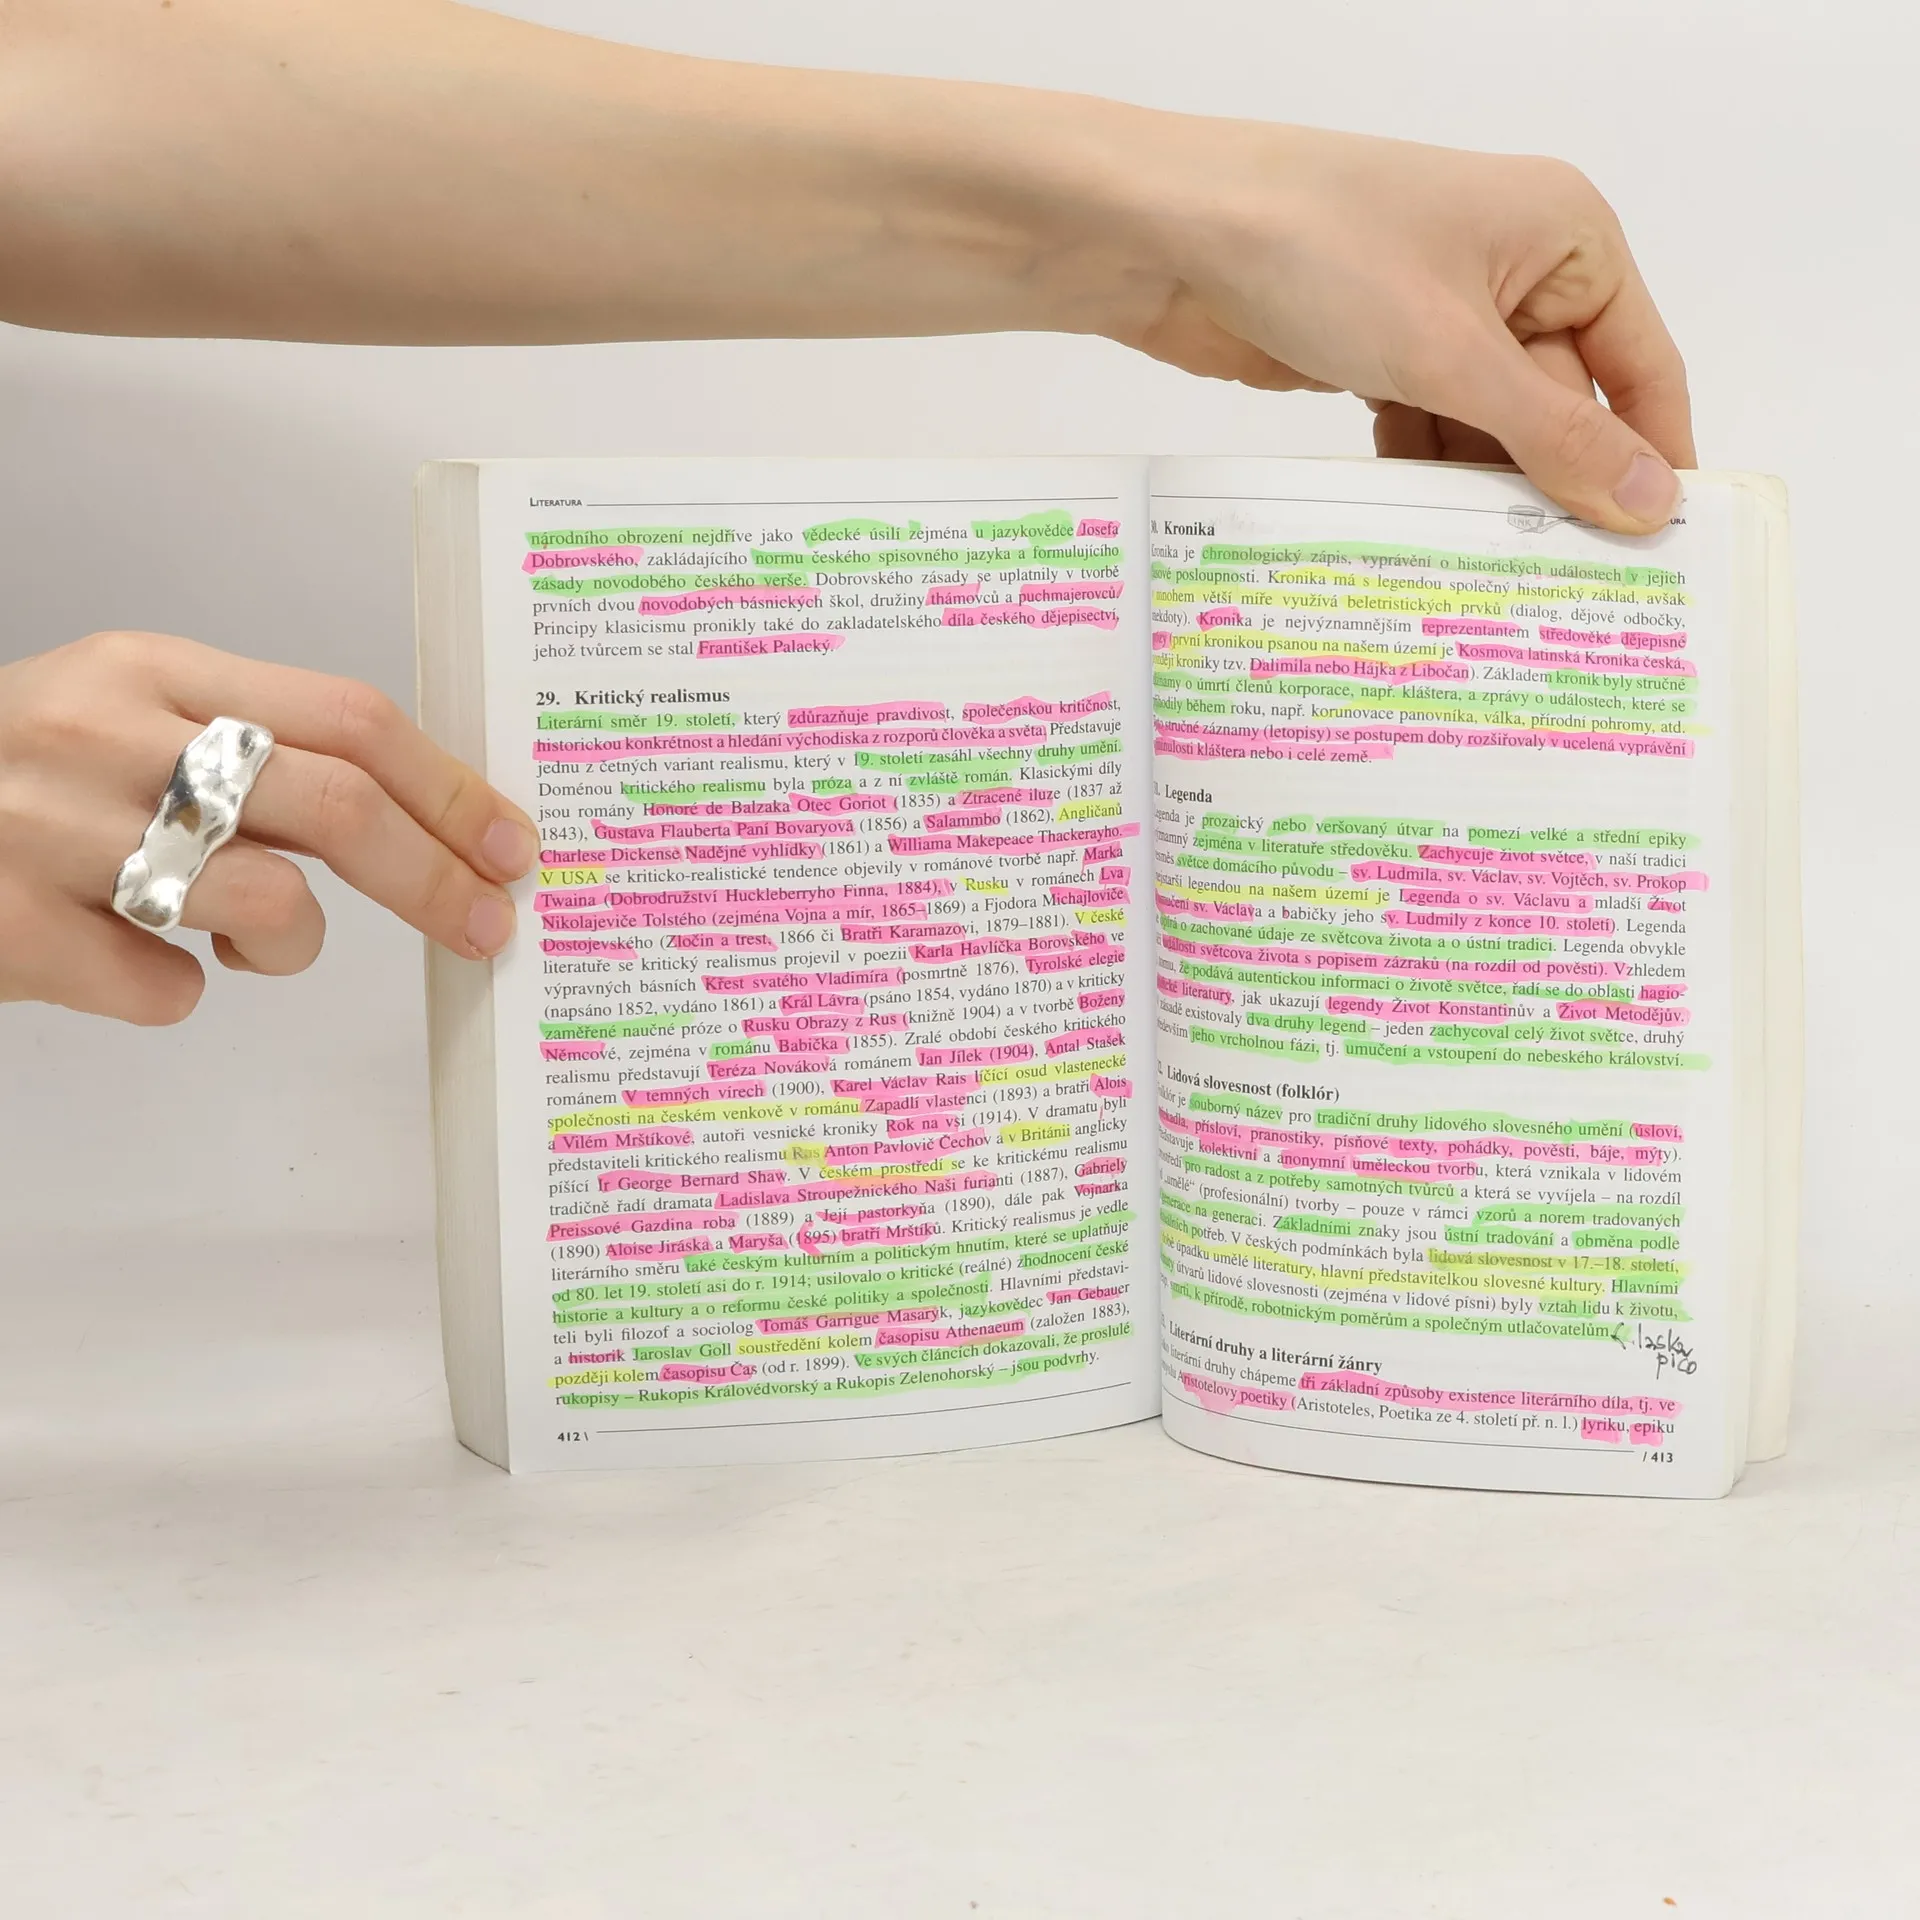 LITERATURA
národního obrození nejdříve jako vědecké úsilí zejména u jazykovědce Josefa
Dobrovského, zakládajícího normu českého spisovného jazyka a formulujícího
zásady novodobého českého verše. Dobrovského zásady se uplatnily v tvorbě
prvních dvou novodobých básnických škol, družiny thámovců a puchmajerovců/
Principy klasicismu pronikly také do zakladatelského díla českého dějepisectví,
jehož tvůrcem se stal František Palacký.
29. Kritický realismus
Literární směr 19. století, který zdůrazňuje pravdivost, společenskou kritičnost,
historickou konkrétnost a hledání východiska z rozporů člověka a světa. Představuje
jednu z četných variant realismu, který v 19. století zasáhl všechny druhy umění.
Doménou kritického realismu byla próza a z ní zvláště román. Klasickými díly
jsou romány Honoré de Balzaka Otec Goriot (1835) a Ztracené iluze (1837 až
1843), Gustava Flauberta Paní Bovaryová (1856) a Salammbo (1862), Angličanů
Charlese Dickense Nadějné vyhlídky (1861) a Williama Makepeace Thackerayho.
V USA se kriticko-realistické tendence objevily v románové tvorbě např. Marka
Twaina (Dobrodružství Huckleberryho Finna, 1884), v Rusku v románech Lva
Nikolajeviče Tolstého (zejména Vojna a mír, 1865–1869) a Fjodora Michajloviče
Dostojevského (Zločin a trest, 1866 či Bratři Karamazovi, 1879–1881). V české
literatuře se kritický realismus projevil v poezii Karla Havlíčka Borovského ve
výpravných básních Křest svatého Vladimíra (posmrtně 1876), Tyrolské elegie
(napsáno 1852, vydáno 1861) a Král Lávra (psáno 1854, vydáno 1870) a v kriticky
zaměřené naučné próze o Rusku Obrazy z Rus (knižně 1904) a v tvorbě Boženy
Němcové, zejména v románu Babička (1855). Zralé období českého kritického
realismu představují Teréza Nováková románem Jan Jílek (1904), Antal Stašek
románem V temných vírech (1900), Karel Václav Rais líčící osud vlastenecké
společnosti na českém venkově v románu Zapadlí vlastenci (1893) a bratři Alois
a Vilém Mrštíkové, autoři vesnické kroniky Rok na vsi (1914). V dramatu byli
představiteli kritického realismu Rus Anton Pavlovič Čechov a v Británii anglicky
píšící Ir George Bernard Shaw. V českém prostředí se ke kritickému realismu
tradičně řadí dramata Ladislava Stroupežnického Naši furianti (1887), Gabriely
Preissové Gazdina roba (1889) a Její pastorkyňa (1890), dále pak Vojnarka
(1890) Aloise Jiráska a Maryša (1895) bratří Mrštíků. Kritický realismus je vedle
literárního směru také českým kulturním a politickým hnutím, které se uplatňuje
od 80. let 19. století asi do r. 1914; usilovalo o kritické (reálné) zhodnocení české
historie a kultury a o reformu české politiky a společnosti. Hlavními představi-
teli byli filozof a sociolog Tomáš Garrigue Masaryk, jazykovědec Jan Gebauer
a historik Jaroslav Goll soustředění kolem časopisu Athenaeum (založen 1883),
později kolem časopisu Čas (od r. 1899). Ve svých článcích dokazovali, že proslulé
rukopisy – Rukopis Královédvorský a Rukopis Zelenohorský – jsou podvrhy.
412 \
URA
Kronika
Kronika je chronologický zápis, vyprávění o historických událostech v jejich
posloupnosti. Kronika má s legendou společný historický základ, avšak
mnohem větší míře využívá beletristických prvků (dialog, dějové odbočky,
Kronika je nejvýznamnějším reprezentantem středověké dějepisné
(první kronikou psanou na našem území je Kosmova latinská Kronika česká,
kroniky tzv. Dalimila nebo Hájka z Libočan). Základem kronik byly stručné
o úmrtí členů korporace, např. kláštera, a zprávy o událostech, které se
během roku, např. korunovace panovníka, válka, přírodní pohromy, atd.
stručné záznamy (letopisy) se postupem doby rozšiřovaly v ucelená vyprávění
minulosti kláštera nebo i celé země.
Legenda
Legenda je prozaický nebo veršovaný útvar na pomezí velké a střední epiky
zejména v literatuře středověku. Zachycuje život světce, v naší tradici
světce domácího původu – sv. Ludmila, sv. Václav, sv. Vojtěch, sv. Prokop
legendou na našem území je Legenda o sv. Václavu a mladší Život
umučení sv. Václava a babičky jeho sv. Ludmily z konce 10. století). Legenda
o zachované údaje ze světcova života a o ústní tradici. Legenda obvykle
události světcova života s popisem zázraků (na rozdíl od pověsti). Vzhledem
že podává autentickou informaci o životě světce, řadí se do oblasti hagio-
literatury, jak ukazují legendy Život Konstantinův a Život Metodějův.
existovaly dva druhy legend – jeden zachycoval celý život světce, druhý
především jeho vrcholnou fázi, tj. umučení a vstoupení do nebeského království.
Lidová slovesnost (folklór)
Folklór je souborný název pro tradiční druhy lidového slovesného umění (úsloví,
přísloví, pranostiky, písňové texty, pohádky, pověsti, báje, mýty).
kolektivní a anonymní uměleckou tvorbu, která vznikala v lidovém
pro radost a z potřeby samotných tvůrců a která se vyvíjela – na rozdíl
„umělé“ (profesionální) tvorby – pouze v rámci vzorů a norem tradovaných
generace na generaci. Základními znaky jsou ústní tradování a obměna podle
potřeb. V českých podmínkách byla lidová slovesnost v 17.–18. století,
úpadku umělé literatury, hlavní představitelkou slovesné kultury. Hlavními
útvarů lidové slovesnosti (zejména v lidové písni) byly vztah lidu k životu,
smrti, k přírodě, robotnickým poměrům a společným utlačovatelům.
Literární druhy a literární žánry
literární druhy chápeme tři základní způsoby existence literárního díla, tj. ve
Aristotelovy poetiky (Aristoteles, Poetika ze 4. století př. n. l.) lyriku, epiku
/ 413